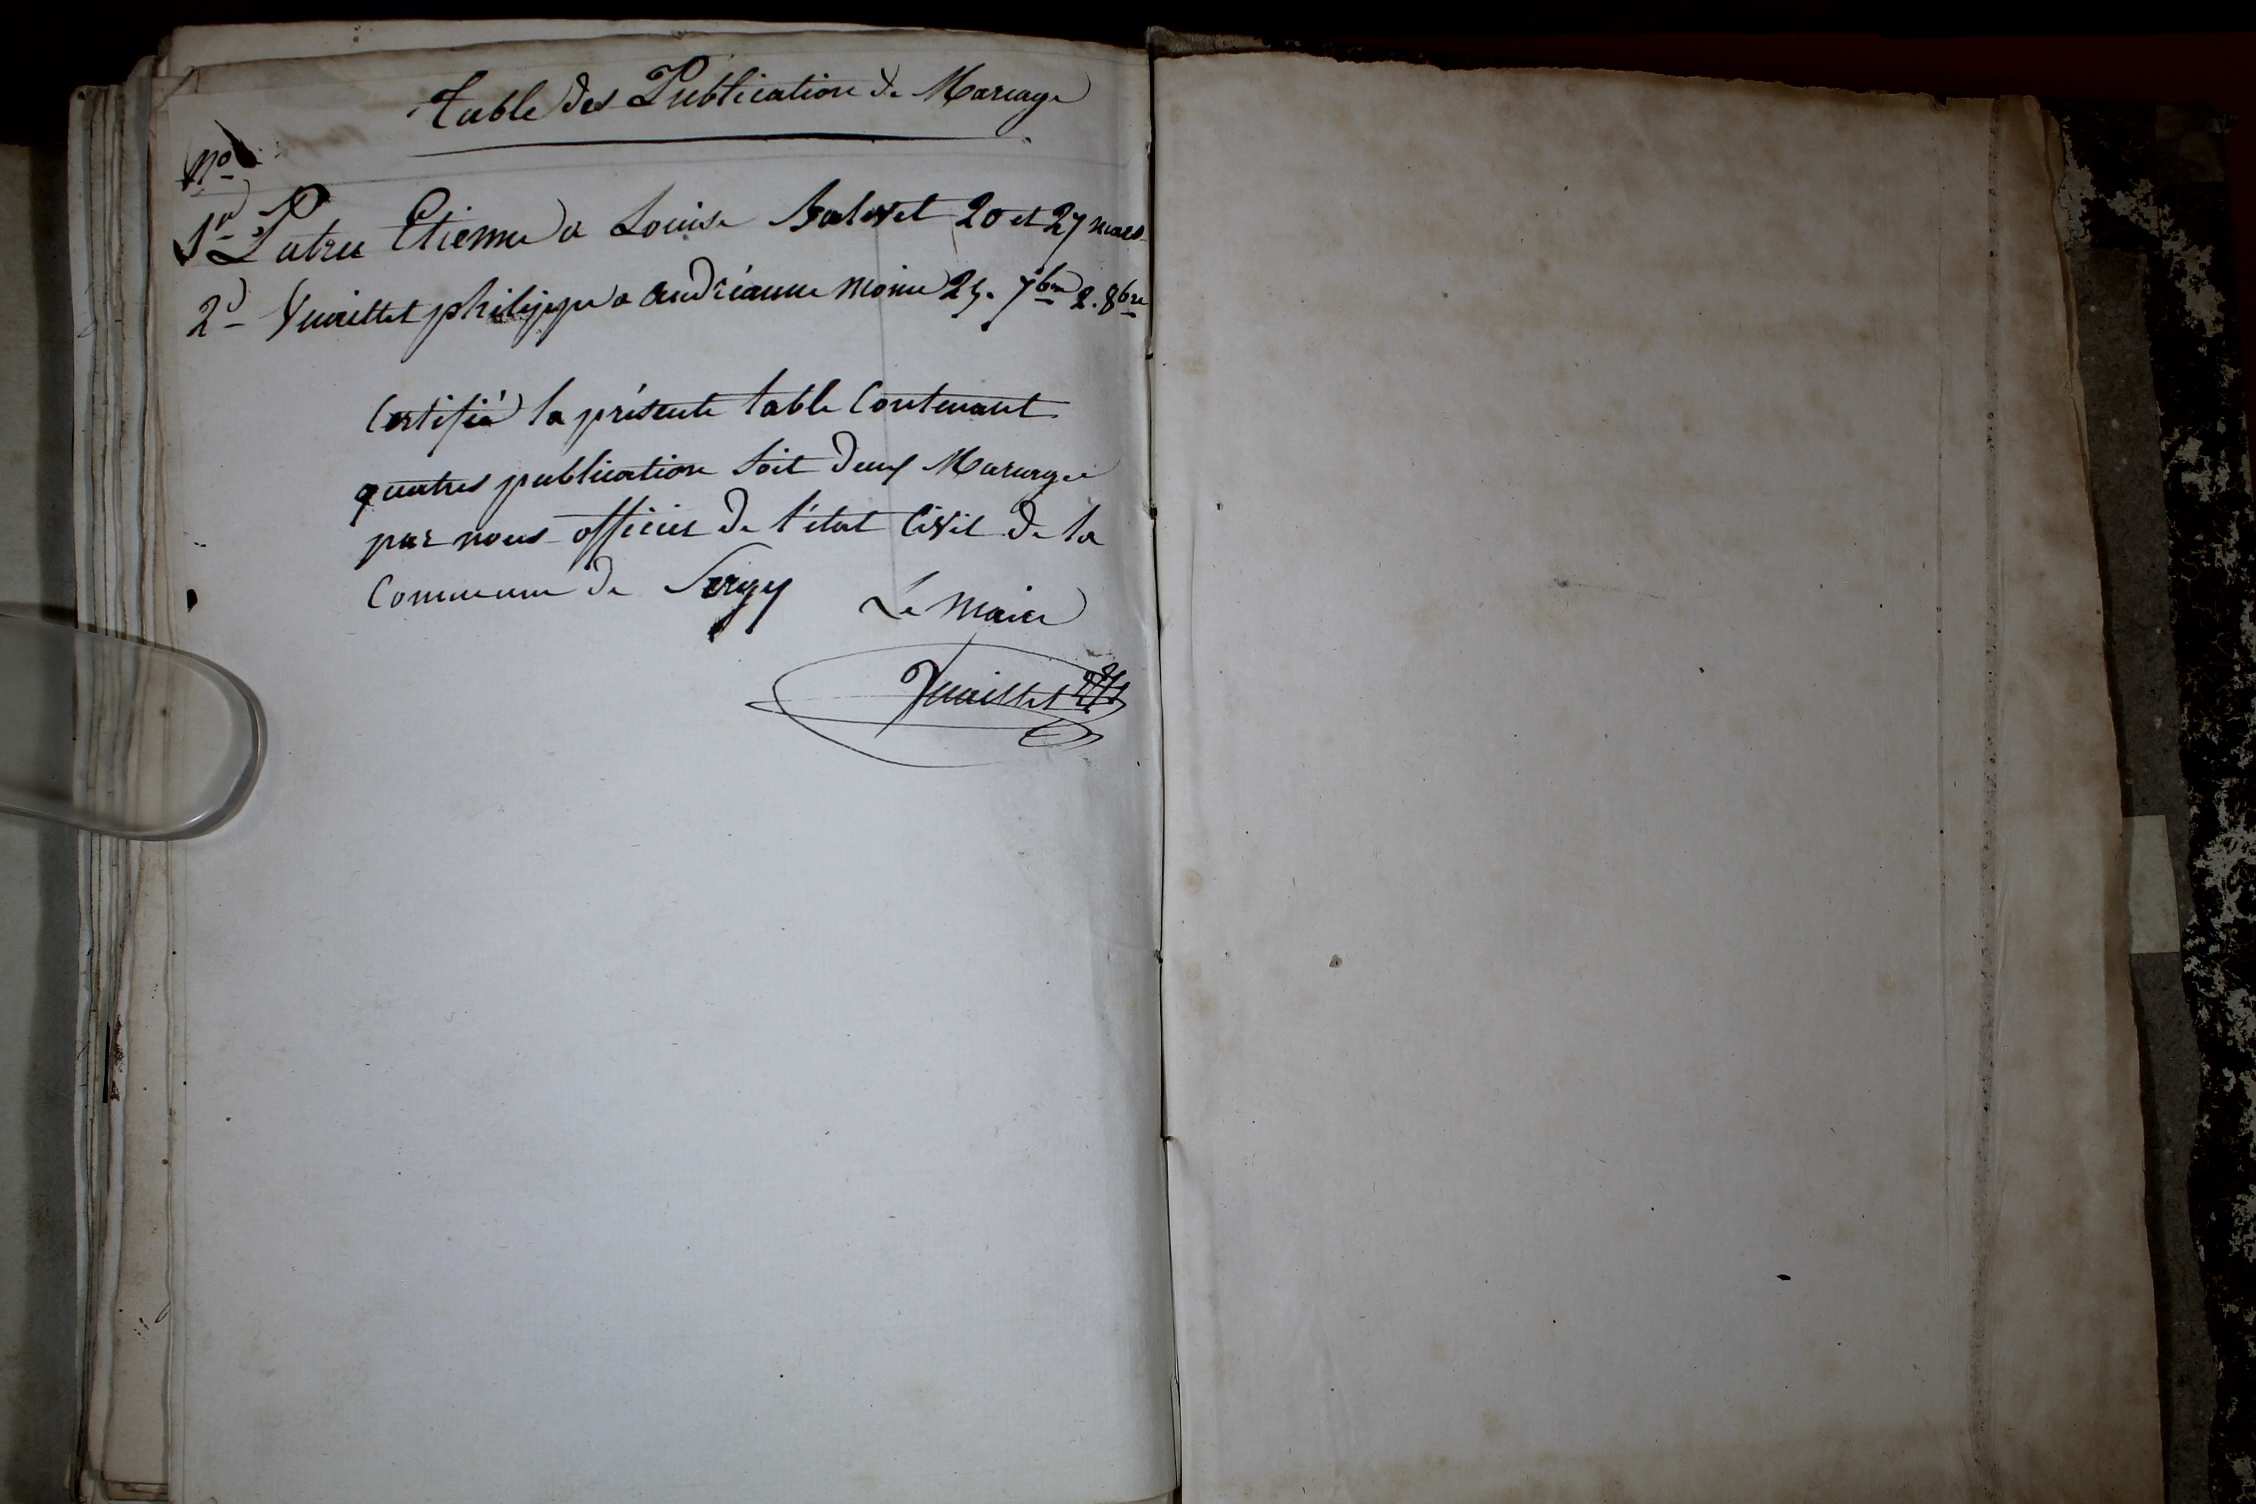 Table des Publication de Mariage
No
1r Patru Etienne a Louise Balivet 20 et 27 mars
2d Vuaillet philippe a andréanne Moine 25. 7bre 2. 8bre
Certifié la présente table Contenant
quatres publication soit deux Mariage
par nous officier de l'état Civil de la
Commune de Sergy Le Maire
Vuaillet